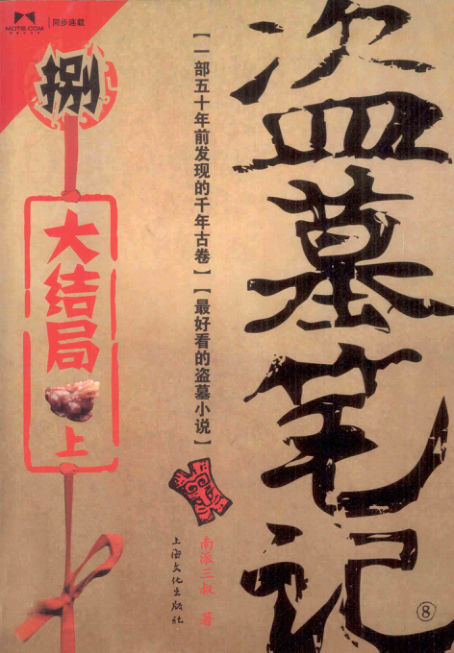 MOTIE.COM
同步连载
捌
大结局
上
【一部五十年前发现的千年古卷】【最好看的盗墓小说】
盗墓笔记
⑧
南派三叔 著
上海文化出版社